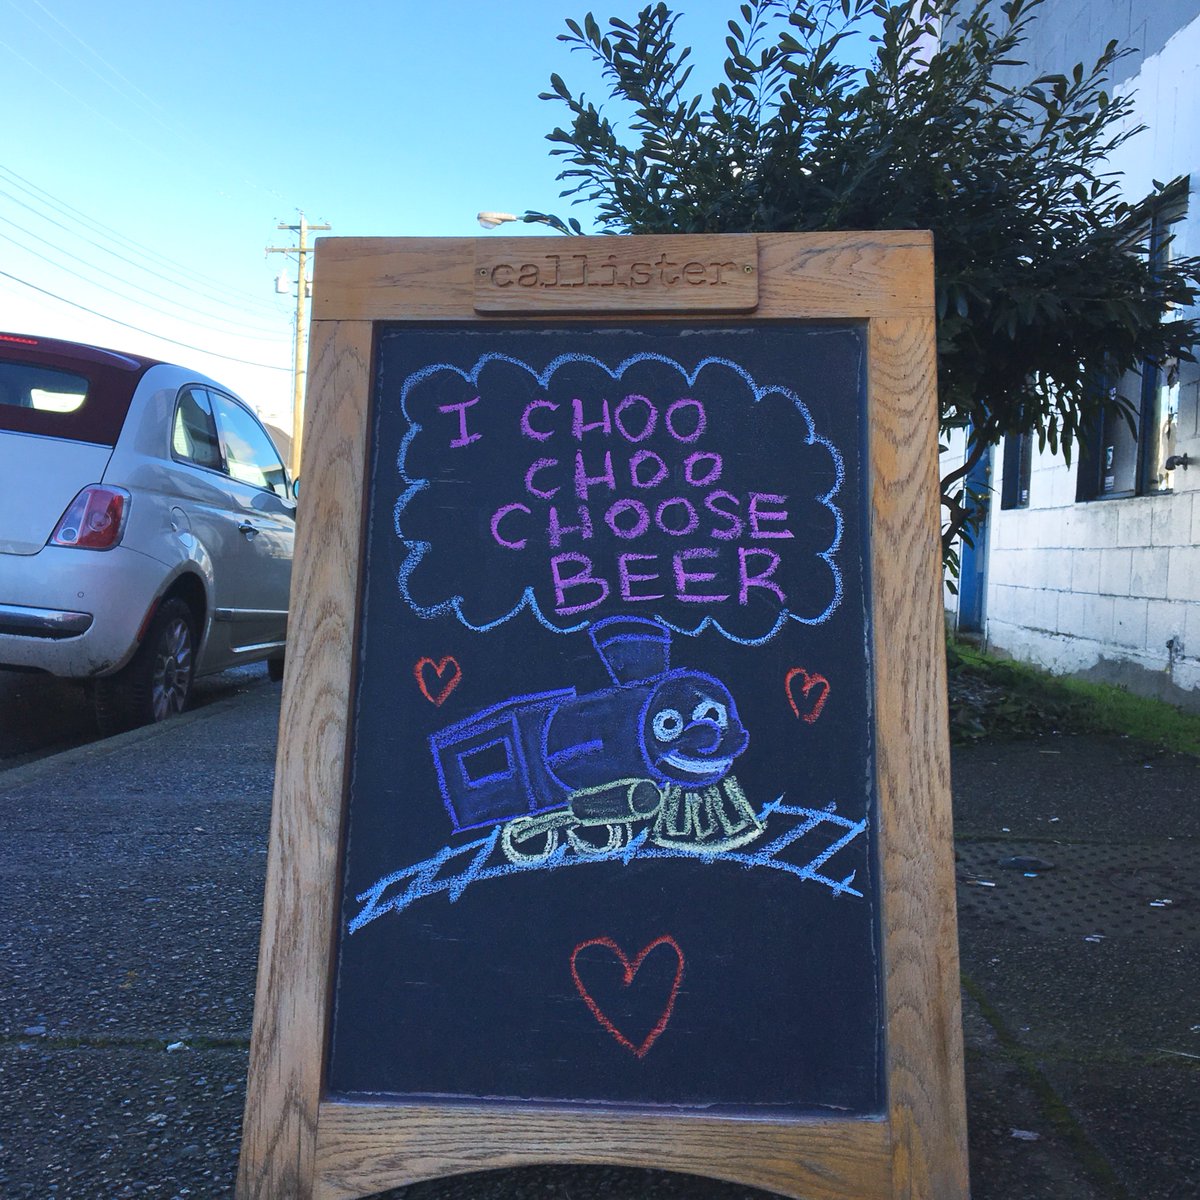 callister
I CHOO
CHOO
CHOOSE
BEER